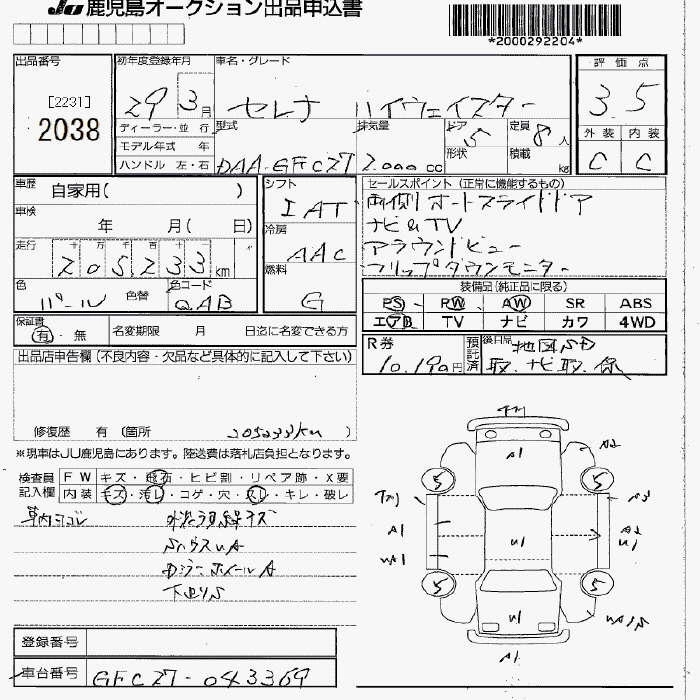 JU 鹿児島オークション出品申込書
*2000292204*
出品番号
[2231]
2038
初年度登録年月
29 3月
車名・グレード
セレナ ハイウェイスター
評価点
3.5
ディーラー・並行
モデル年式 年
ハンドル 左・右
型式
DAA-GFC27
排気量
2.000 cc
ドア
5
形状
定員
8人
積載
kg
外装 内装
C C
車歴
自家用( )
車検
年 月( 日)
走行
十万千百十一
205233km
色
パール
色替
色コード
QAB
シフト
IAT
冷房
AAC
燃料
G
セールスポイント (正常に機能するもの)
両側オートスライドドア
ナビ&TV
アラウンドビュー
フリップダウンモニター
装備品(純正品に限る)
PS PW AW SR ABS
エアB TV ナビ カワ 4WD
保証書
有・無
名変期限 月 日迄に名変できる方
R券
10.190円
預託済
後日品
地図SD
取、ナビ取、保
出品店申告欄 (不良内容・欠品など具体的に記入して下さい)
修復歴 有 (箇所 205233km )
※現車はJU鹿児島にあります。陸送費は落札店負担となります。
検査員記入欄
FW キズ・飛石・ヒビ割・リペア跡・X要
内装 キズ・汚レ・コゲ・穴・スレ・キレ・破レ
車内ヨゴレ
下回りS
A1
A2
5
5
A1
U1
A2
U1
5
5
U1
A1
登録番号
車台番号 GFC27-043369